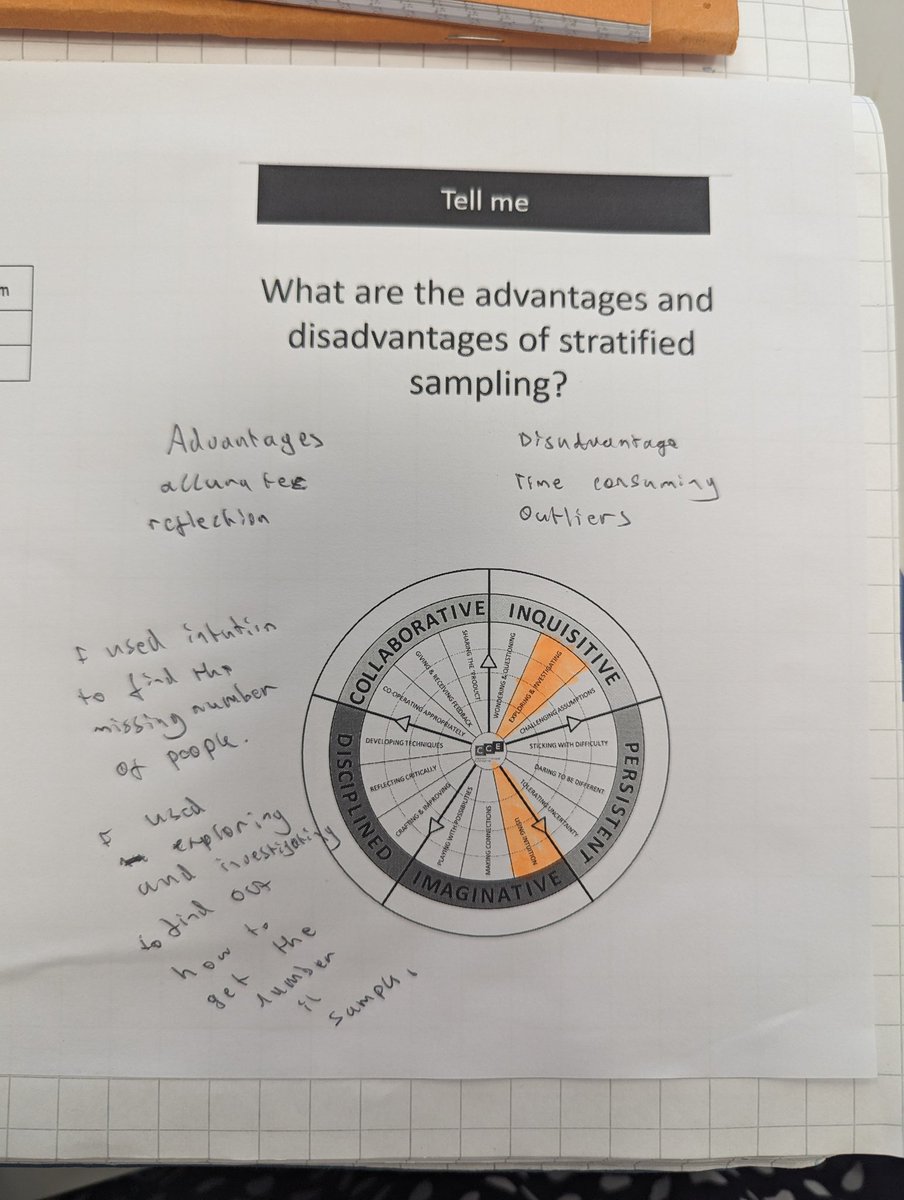 Tell me
m
What are the advantages and
disadvantages of stratified
sampling?
Advantages
reflection
Disadvantage
Time consuming
Outliers
I used intution
to find the
missing number
of people.
I used
exploring
and investigating
to find out
how to
get the
number
sample.
COLLABORATIVE
INQUISITIVE
PERSISTENT
IMAGINATIVE
DISCIPLINED
CO-OPERATING APPROPRIATELY
GIVING & RECEIVING FEEDBACK
SHARING THE 'PRODUCT'
WONDERING & QUESTIONING
EXPLORING & INVESTIGATING
CHALLENGING ASSUMPTIONS
STICKING WITH DIFFICULTY
DARING TO BE DIFFERENT
TOLERATING UNCERTAINTY
USING INTUITION
MAKING CONNECTIONS
PLAYING WITH POSSIBILITIES
CRAFTING & IMPROVING
REFLECTING CRITICALLY
DEVELOPING TECHNIQUES
CCE